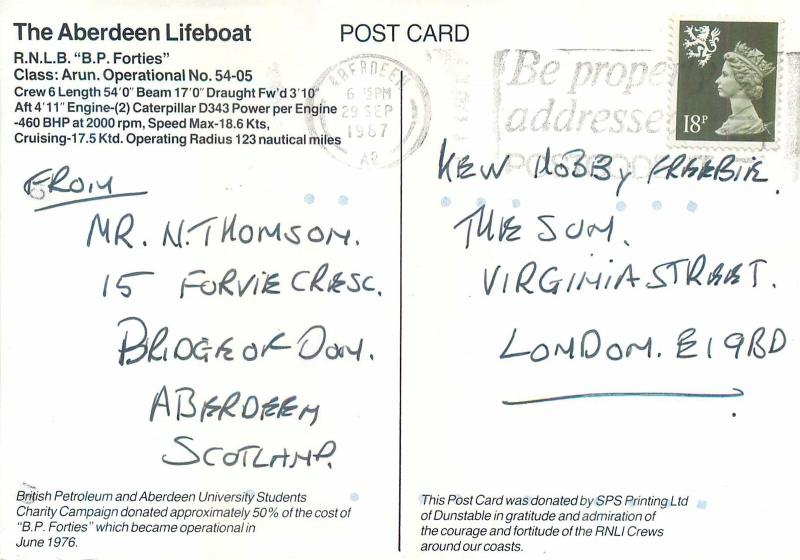 The Aberdeen Lifeboat
R.N.L.B. "B.P. Forties"
Class: Arun. Operational No. 54-05
Crew 6 Length 54'0" Beam 17'0" Draught Fw'd 3'10"
Aft 4'11" Engine-(2) Caterpillar D343 Power per Engine
-460 BHP at 2000 rpm, Speed Max-18.6 Kts,
Cruising-17.5 Ktd. Operating Radius 123 nautical miles
POST CARD
ABERDEEN
6 15PM
29 SEP
1987
Be properly
addressed
POSTCODE
18P
FROM
MR. N. THOMSON.
15 FORVIE CRESC.
BRIDGE OF DON.
ABERDEEN
SCOTLAND.
KEW HOBBY FREEBIE.
THE SUN.
VIRGINIA STREET.
LONDON. E1 9BD
British Petroleum and Aberdeen University Students
Charity Campaign donated approximately 50% of the cost of
"B.P. Forties" which became operational in
June 1976.
This Post Card was donated by SPS Printing Ltd
of Dunstable in gratitude and admiration of
the courage and fortitude of the RNLI Crews
around our coasts.